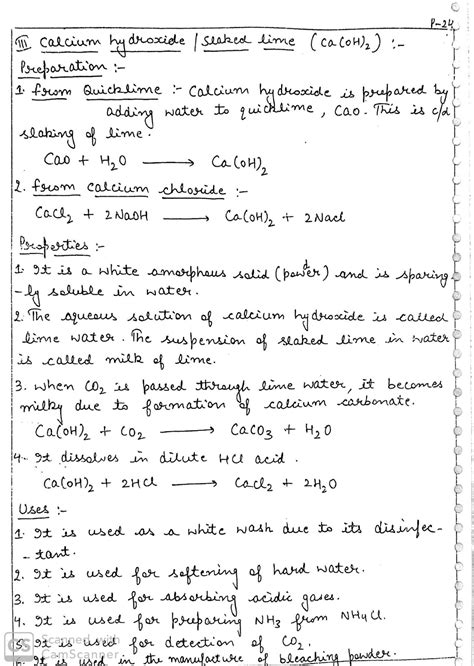 P-24
III Calcium hydroxide / Slaked lime (Ca(OH)₂) :-
Preparation :-
1. From Quicklime :- Calcium hydroxide is prepared by
adding water to quicklime, CaO. This is c/d
slaking of lime.
CaO + H₂O ⟶ Ca(OH)₂
2. From calcium chloride :-
CaCl₂ + 2NaOH ⟶ Ca(OH)₂ + 2NaCl
Properties :-
1. It is a white amorphous solid (powder) and is sparing
-ly soluble in water.
2. The aqueous solution of calcium hydroxide is called
lime water. The suspension of slaked lime in water
is called milk of lime.
3. When CO₂ is passed through lime water, it becomes
milky due to formation of calcium carbonate.
Ca(OH)₂ + CO₂ ⟶ CaCO₃ + H₂O
4. It dissolves in dilute HCl acid.
Ca(OH)₂ + 2HCl ⟶ CaCl₂ + 2H₂O
Uses :-
1. It is used as a white wash due to its disinfec-
-tant.
2. It is used for softening of hard water.
3. It is used for absorbing acidic gases.
4. It is used for preparing NH₃ from NH₄Cl.
5. It is used for detection of CO₂.
6. It is used in the manufacture of bleaching powder.
CS Scanned with
CamScanner